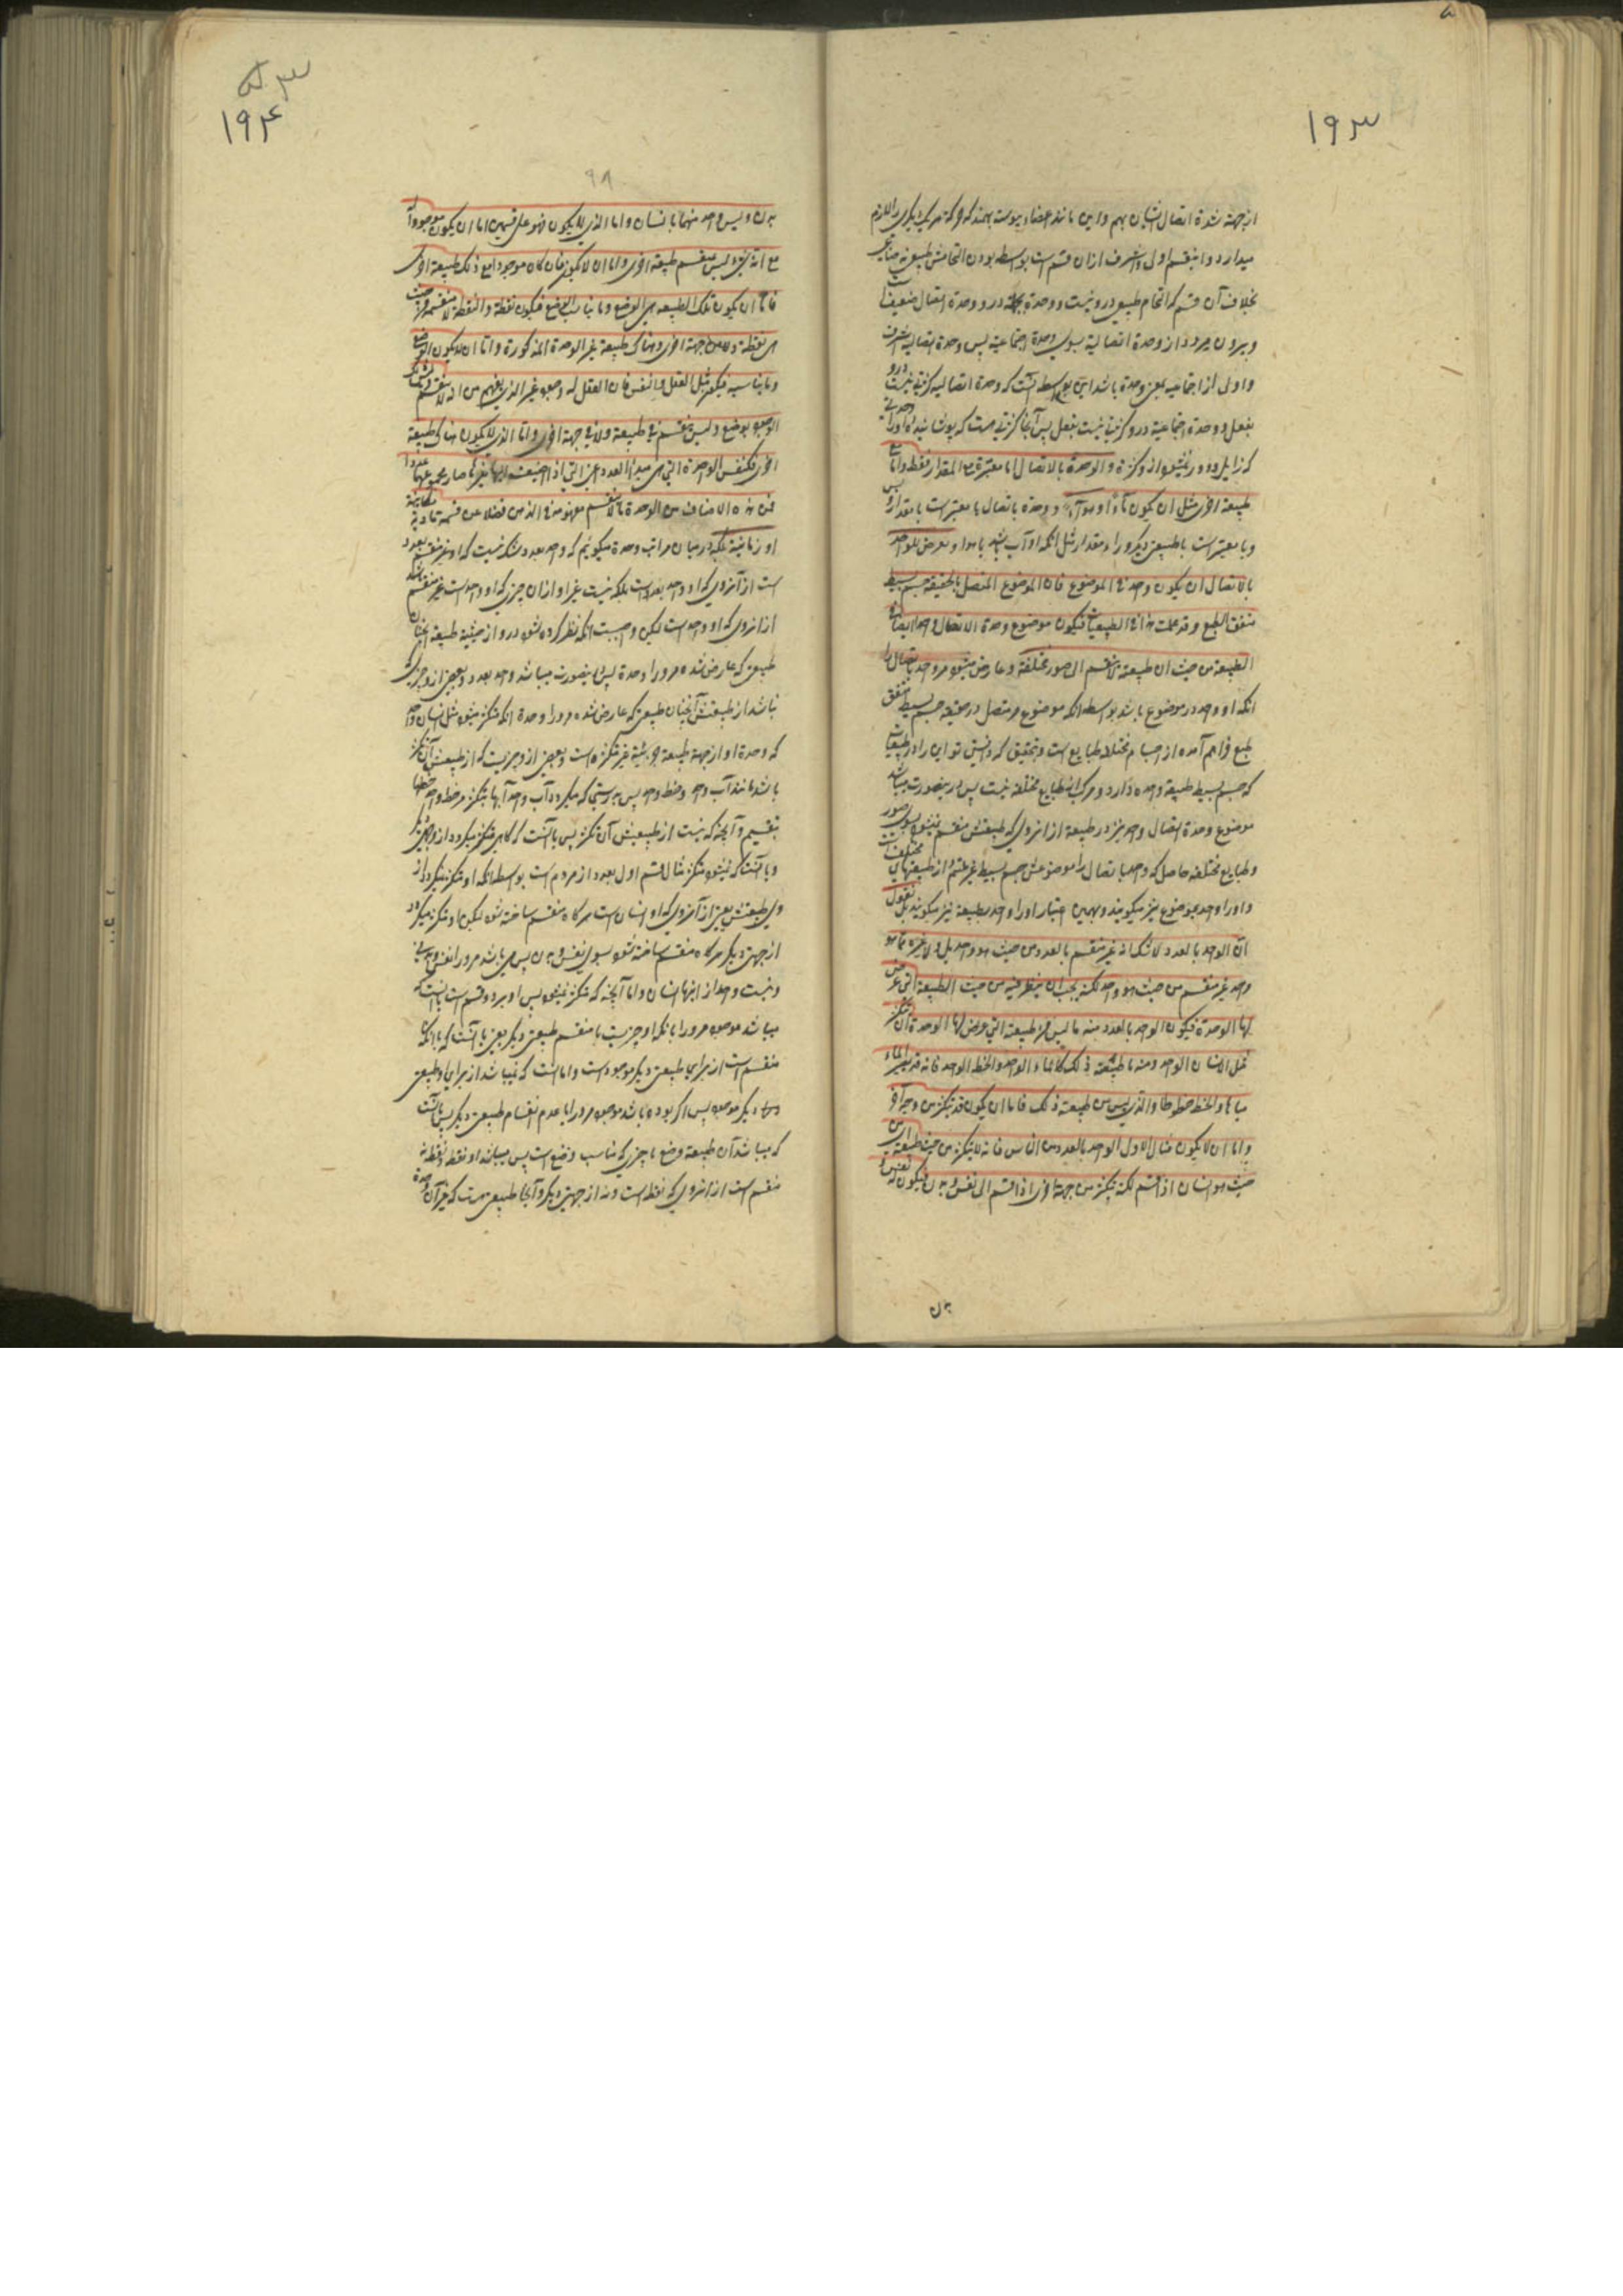 ۱۹۳
از جهة شدة اتصال ایشان بهم و این مانند اعضاء پیوست بهمند که حرکة هر یک دیگری را لازم
میدارد و این قسم اولی و اشرف از ان قسم است بواسطه بودن التحامش طبیعی نه صناعی
بخلاف آن قسم که التحام طبیعی درو نیست و وحدة بجملة درو و وحدة اتصال ضعیف است
و بیرون میرود از وحدة اتصالیة بسوی وحدة اجتماعیة پس وحدة اتصالیه اشرف
و اولی از اجتماعیه بمعنی وحدة باشد این بواسطه آنست که وحدة اتصالیه کثرتی نیست درو
بفعل و وحدة اجتماعیة درو کثرتی نیست بفعل پس آنجا کثرتی هست که پوشانیده او را وحدتی
که زایل و دور نمیشود ازو کثرة والوحدة بالاتصال اما معتبرة مع المقدار فقط واما مع
طبیعة اخری مثل ان یکون ماءً او هواءً و وحدة باتصال یا معتبر است با مقدار و بس
و یا معتبر است با طبیعتی دیگر وراء مقدار مثل آنکه او آب باشد یا هوا ویعرض للواحد
بالاتصال ان یکون واحد فی الموضوع فان الموضوع المتصل بالحقیقة جسم بسیط
متفق الطبع وقد علمت هذا فی الطبیعیات فیکون موضوع وحدة الاتصال واحدا ایضا فی
الطبیعة من حیث ان طبیعته لا تنقسم الی صور مختلفة و عارض میشود مر واحد باتصال را
آنکه او واحد در موضوع باشد بواسطه آنکه موضوع مر متصل در حقیقة جسم بسیط متفق
طبع فراهم آمده از اجسام مختلف طبایع است و بتحقیق که دانستی تو این را در طبیعیات
که جسم بسیط طبیعة واحده دارد و مرکب از طبایع مختلفه نیست پس درینصورت میباشد
موضوع وحدة اتصال واحد نیز در طبیعة از انروی که طبیعتش منقسم نمیشود بسوی صور
و طبایع مختلفه حاصل که واحد باتصال را موضوعش جسم بسیط غیر ملتئم از طبیعتهای مختلف است
و او را واحد بموضوع نیز میگویند و بهمین اعتبار او را واحد بطبیعة نیز میگویند بل نقول
ان الواحد بالعدد لا شک انه غیر منقسم بالعدد من حیث هو واحد بل ولا غیره مما هو
واحد غیر منقسم من حیث هو واحد لکنه یجب ان ینظر فیه من حیث الطبیعة التی عرض
لها الوحدة فیکون الواحد بالعدد منه ما لیس من طبیعته التی عرض لها الوحدة ان یتکثر
مثل الانسان الواحد ومنه ما طبیعته ذلک کالماء الواحد والخط الواحد فانه قد یصیر الماء
میاها والخط خطوطا والذی لیس من طبیعته ذلک فاما ان یکون قد یتکثر من وجه آخر
واما ان لا یکون مثال الاول الواحد بالعدد من الناس فانه لا یتکثر من حیث طبیعته ای من
حیث هو انسان اذا قسم لکنه یتکثر من جهة اخری اذا قسم الی نفس و بدن فیکون له نفس و
بدن
۱۹۴
۹۸
بدن ولیس واحد منهما بانسان واما الذی لا یکون فهو علی قسمین اما ان یکون موجوداً
مع انه شیء لیس بمنقسم طبیعة اخری واما ان لا یکون فان کان موجودا مع ذلک طبیعة اخری
فاما ان یکون تلک الطبیعة هی الوضع وما یناسب الوضع فیکون نقطة والنقطة لا منقسمة من حیث
هی نقطة ولا من جهة اخری وهناک طبیعة غیر الوحدة المذکورة واما ان لا یکون الوضع
وما یناسبه فیکون مثل العقل والنفس فان العقل له وجود غیر الذی یفهم من انه لا ینقسم ولیس ذلک
الوجود بوضع ولیس بمنقسم فی طبیعة ولا فی جهة اخری واما الذی لا یکون هناک طبیعة
اخری فکنفس الوحدة التی هی مبدأ العدد اعنی التی اذا اضیف الیها غیرها صار مجموعهما عددا
فمن هذه الاصناف من الوحدة ما لا ینقسم مفهومه فی الذهن فضلا عن قسمة مادیة او مکانیة
او زمانیة بلکه در بیان مراتب وحدة میگوئیم که واحد بعدد شک نیست که او غیر منقسم بعدد
است از آنروی که او واحد بعدد است بلکه نیست غیر او از ان چیزی که او واحد است غیر منقسم باشد
از انروی که او واحد است لیکن واجبست آنکه نظر کرده شود درو از حیثیة طبیعة آنچنان
طبیعی که عارض شده مر ورا وحدة پس اینصورت میباشد واحد بعدد بعضی از و چیزی که
نباشد از طبیعتش آنچنان طبیعی که عارض شده مر ورا وحدة آنکه متکثر میشود مثل انسان واحد
که وحدة او از جهة طبیعة غیر متکثره است و بعضی ازو چیزیست که از طبیعتش آن تکثر
باشد مانند آب واحد و خط واحد پس بدرستی که میگردد آب واحد آبها بتکثر مر خط واحد خطها
بتقسیم و آنچه که نیست از طبیعتش آن تکثر پس یا آنست که گاهی متکثر میگردد از وجهی دیگر
و یا آنست که نمیشود متکثر مثال قسم اول بعدد از مردم است بواسطه آنکه او متکثر نمیگردد از
روی طبیعتش یعنی از آنروی که او انسان است هر گاه منقسم ساخته شود لیکن او متکثر میگردد
از جهتی دیگر هر گاه منقسم ساخته شود بسوی نفس و بدن پس می باشد مر ورا نفس و بدنی
و نیست واحد از اینها انسان و اما آنچه که متکثر نمیشود پس او بر دو قسم است یا آنست که
میباشد موجود مر ورا بآنکه او چیزیست نا منقسم طبیعتی دیگر یعنی یا آنست که با آنکه نا
منقسم است از برای طبیعتی دیگر موجود است و اما آنست که نمیباشد از برای او طبیعتی
دیگر موجود پس اگر بوده باشد موجود مر ورا با عدم انقسام طبیعتی دیگر پس یا آنست
که میباشد آن طبیعة وضع یا چیزی که مناسب وضع است پس میباشد او نقطه و نقطه نه
منقسم است از انروی که نقطه است و نه از جهتی دیگر و آنجا طبیعتی هست که غیر آن وحدة